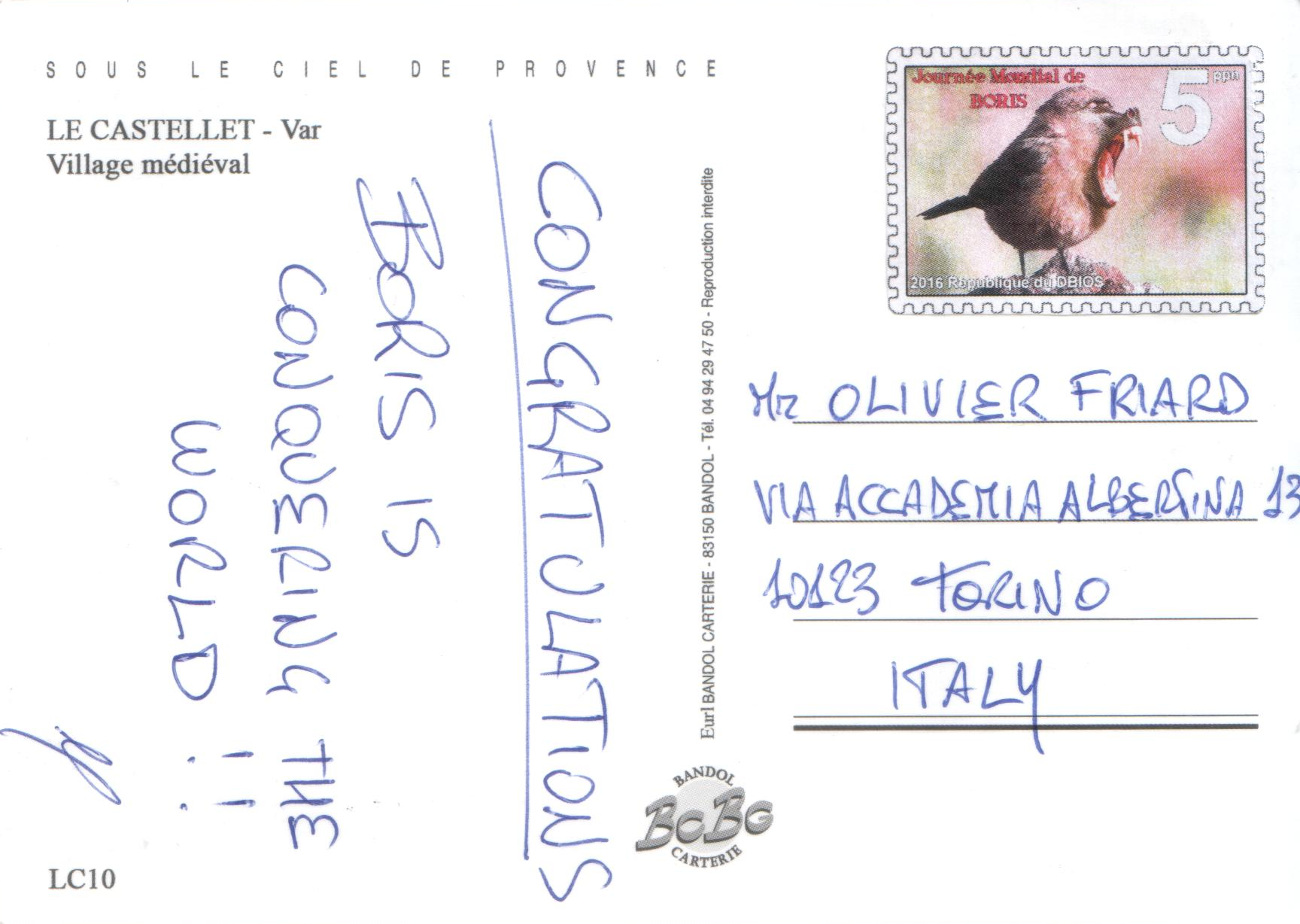 SOUS LE CIEL DE PROVENCE
LE CASTELLET - Var
Village médiéval
CONGRATULATIONS
BORIS IS
CONQUERING THE
WORLD !!
LC10
Eurl BANDOL CARTERIE - 83150 BANDOL - Tél. 04 94 29 47 50 - Reproduction interdite
BANDOL
BCBG
CARTERIE
Journée Mondial de
BORIS
5 ppn
2016 République du DBIOS
Mr OLIVIER FRIARD
VIA ACCADEMIA ALBERTINA 13
10123 TORINO
ITALY